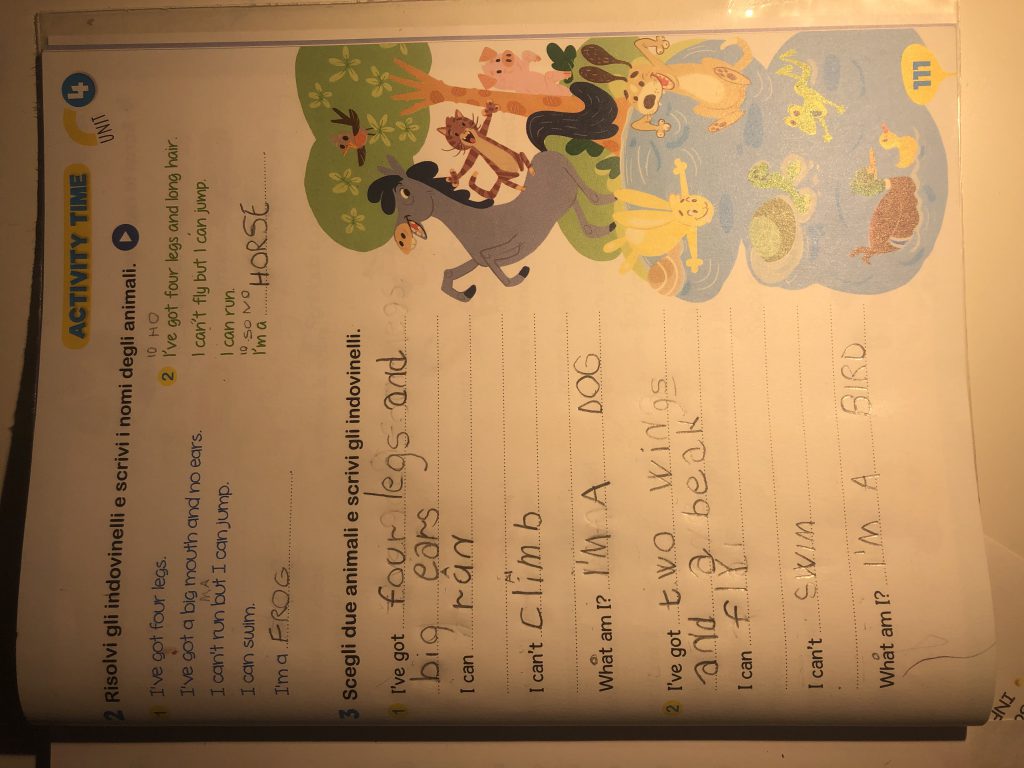 ACTIVITY TIME
UNIT 4
2 Risolvi gli indovinelli e scrivi i nomi degli animali.
1 I've got four legs.
I've got a big mouth and no ears.
MA
I can't run but I can jump.
I can swim.
I'm a FROG
IO HO
2 I've got four legs and long hair.
I can't fly but I can jump.
I can run.
IO SONO
I'm a HORSE
3 Scegli due animali e scrivi gli indovinelli.
1 I've got four legs and
big ears
I can rân
I can't climb
What am I? I'M A DOG
2 I've got two wings
and a beak
I can fly
I can't swim
What am I? I'M A BIRD
111